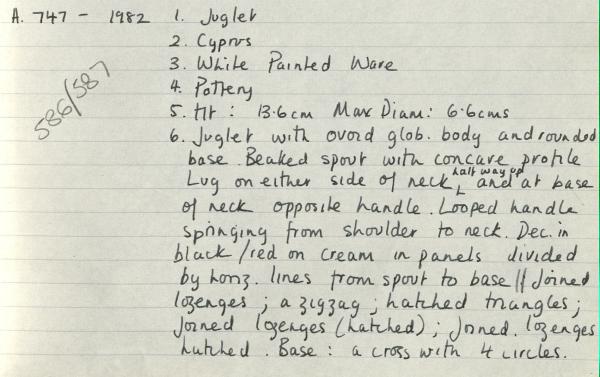 A. 747 - 1982 1. Juglet
2. Cyprus
3. White Painted Ware
4. Pottery
586/587
5. Ht: 13.6cm Max Diam: 6.6cms
6. Juglet with ovoid glob. body and rounded
base. Beaked spout with concave profile
Lug on either side of neck half way up and at base
of neck opposite handle. Looped handle
springing from shoulder to neck. Dec. in
black/red on cream in panels divided
by horiz. lines from spout to base || Joined
lozenges; a zigzag; hatched triangles;
Joined lozenges (hatched); Joined. lozenges
hatched. Base: a cross with 4 circles.